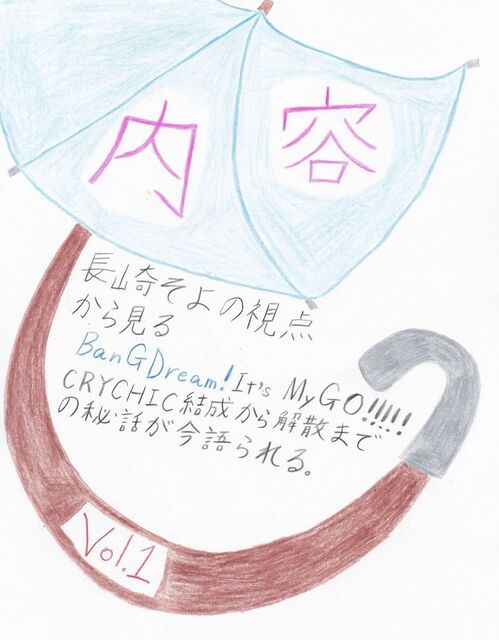 内容
長崎そよの視点
から見る
BanGDream! It's MyGO!!!!!
CRYCHIC結成から解散まで
の秘話が今語られる。
Vol.1